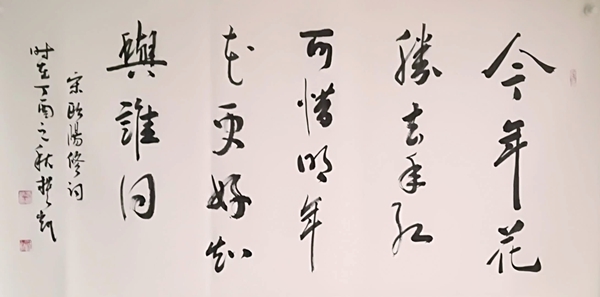 今年花
勝去年红
可惜明年
花更好知
與誰同
宋欧陽修词
时在丁酉之秋